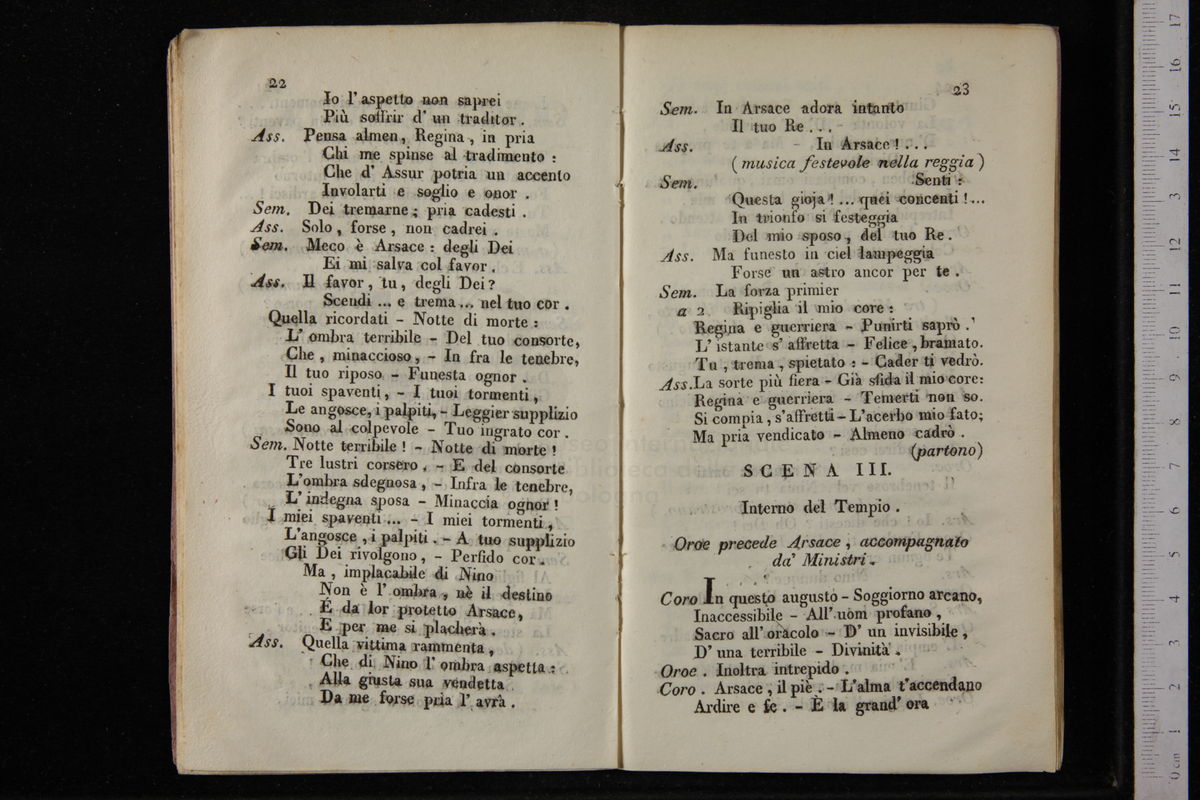 22
Io l' aspetto non saprei
Più soffrir d' un traditor .
Ass. Pensa almen, Regina , in pria
Chi me spinse al tradimento :
Che d' Assur potria un accento
Involarti e soglio e onor .
Sem. Dei tremarne ; pria cadesti .
Ass. Solo , forse , non cadrei .
Sem. Meco è Arsace : degli Dei
Ei mi salva col favor .
Ass. Il favor , tu , degli Dei ?
Scendi ... e trema ... nel tuo cor .
Quella ricordati - Notte di morte :
L' ombra terribile - Del tuo consorte,
Che , minaccioso , - In fra le tenebre,
Il tuo riposo - Funesta ognor .
I tuoi spaventi , - I tuoi tormenti ,
Le angosce, i palpiti, - Leggier supplizio
Sono al colpevole - Tuo ingrato cor .
Sem. Notte terribile ! - Notte di morte !
Tre lustri corsero , - E del consorte
L'ombra sdegnosa , - Infra le tenebre,
L' indegna sposa - Minaccia ognor !
I miei spaventi ... - I miei tormenti ,
L'angosce , i palpiti . - A tuo supplizio
Gli Dei rivolgono , - Perfido cor .
Ma , implacabile di Nino
Non è l' ombra , nè il destino
É da lor protetto Arsace,
E per me si placherà .
Ass. Quella vittima rammenta ,
Che di Nino l' ombra aspetta :
Alla giusta sua vendetta
Da me forse pria l' avrà .
23
Sem. In Arsace adora intanto
Il tuo Re . . .
Ass. - In Arsace ! . . .
( musica festevole nella reggia )
Sem. Senti :
Questa gioja ! ... quei concenti ! ...
In trionfo si festeggia
Del mio sposo , del tuo Re .
Ass. Ma funesto in ciel lampeggia
Forse un astro ancor per te .
Sem. La forza primier
a 2 Ripiglia il mio core :
Regina e guerriera - Punirti saprò .
L' istante s' affretta - Felice , bramato.
Tu , trema , spietato : - Cader ti vedrò.
Ass. La sorte più fiera - Già sfida il mio core:
Regina e guerriera - Temerti non so.
Si compia , s'affretti - L'acerbo mio fato;
Ma pria vendicato - Almeno cadrò .
(partono)
SCENA III.
Interno del Tempio .
Oroe precede Arsace , accompagnato
da' Ministri .
Coro In questo augusto - Soggiorno arcano,
Inaccessibile - All' uom profano ,
Sacro all' oracolo - D' un invisibile ,
D' una terribile - Divinità .
Oroe . Inoltra intrepido .
Coro . Arsace , il piè . - L'alma t'accendano
Ardire e fe . - È la grand' ora